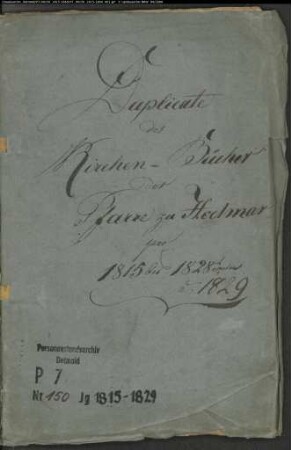 Duplicate
der
Kirchen-Bücher
der
Pfarre zu Hectmar
pro
1815 bis 1828
1829
Personenstandsarchiv
Detmold
P 7
Nr 150 Jg 1815-1829